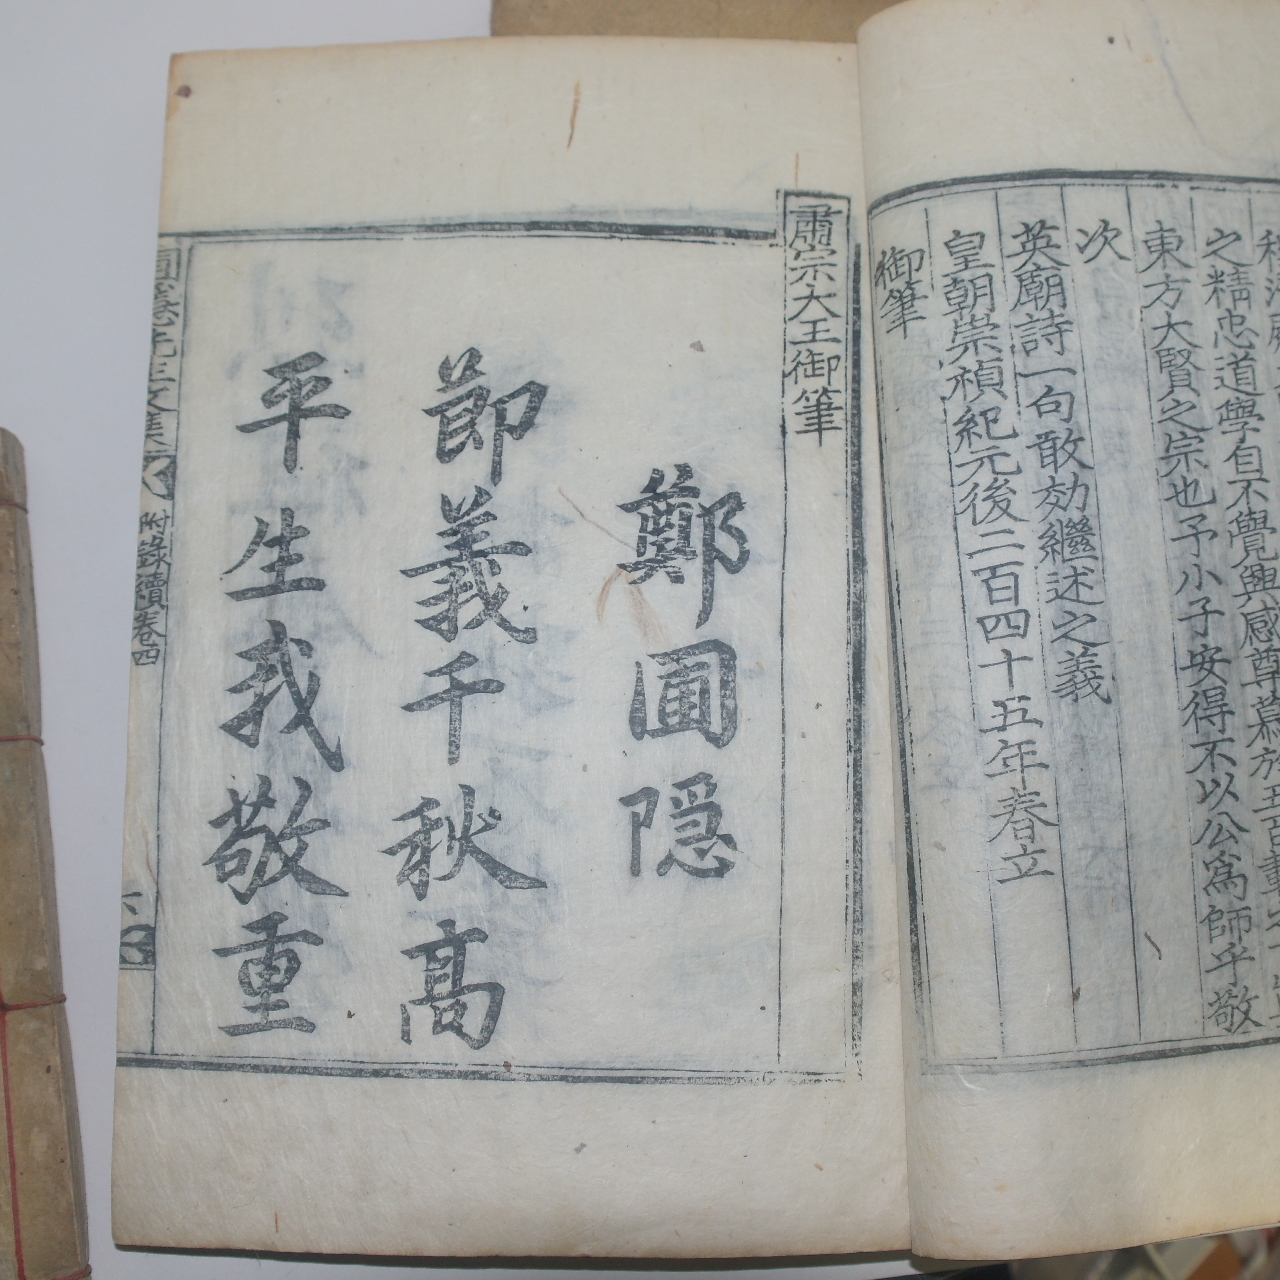 之精忠道學自不覺興感尊
東方大賢之宗也予小子安得不以公爲師乎敬
次
英廟詩一句敢効繼述之義
皇朝崇禎紀元後二百四十五年春立
御筆
肅宗大王御筆
鄭圃隱
節義千秋高
平生我敬重
圃隱先生文集
附錄續卷四
六